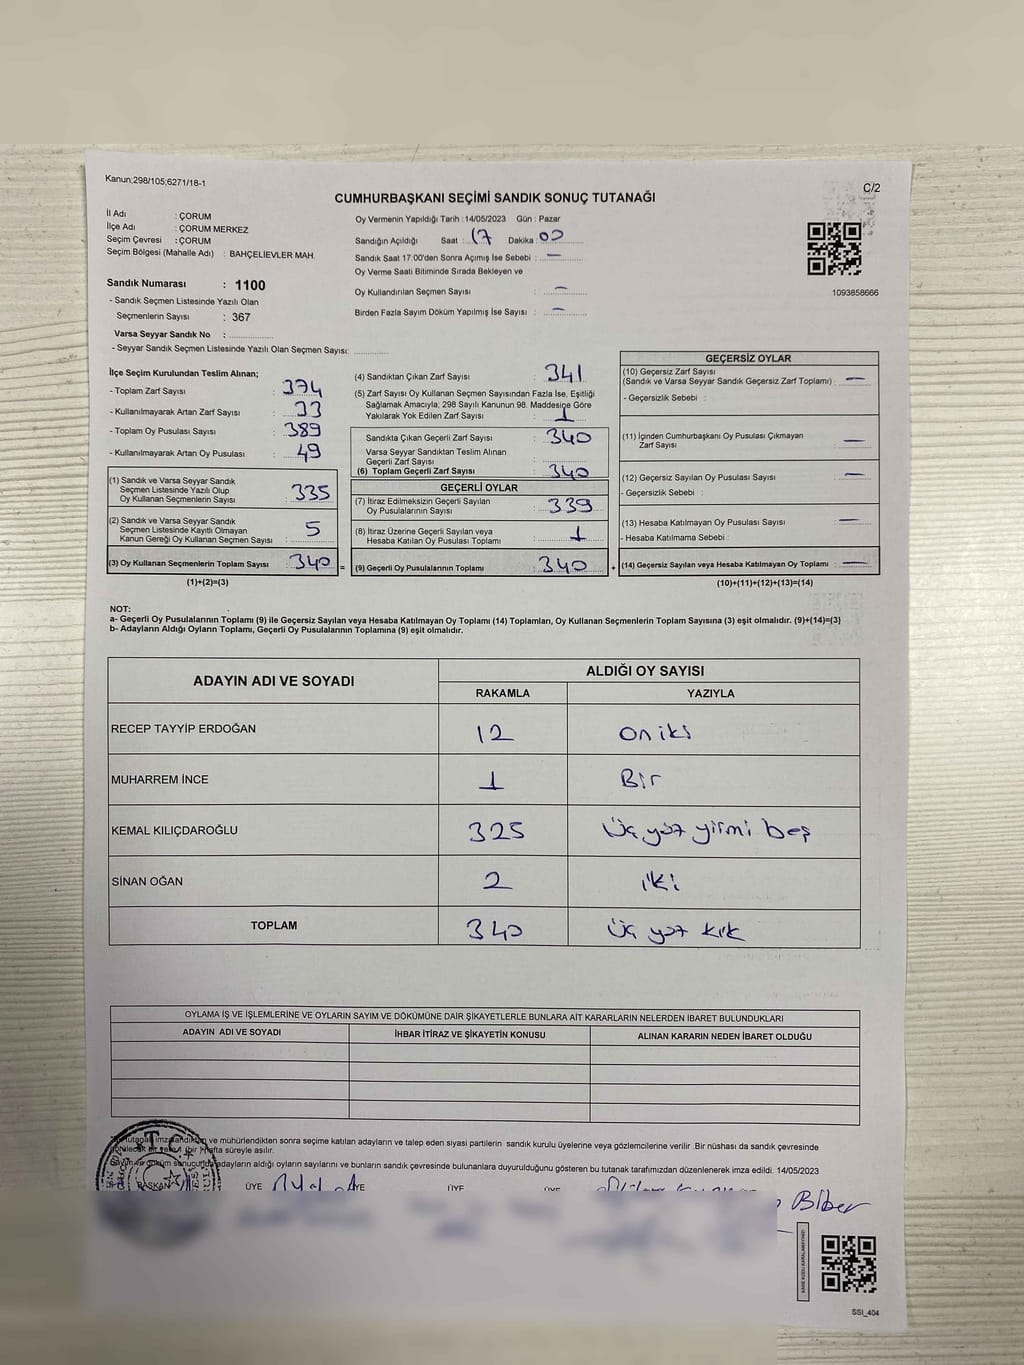 Kanun;298/105;6271/18-1
C/2
CUMHURBAŞKANI SEÇİMİ SANDIK SONUÇ TUTANAĞI
İl Adı : ÇORUM
İlçe Adı : ÇORUM MERKEZ
Seçim Çevresi : ÇORUM
Seçim Bölgesi (Mahalle Adı) : BAHÇELİEVLER MAH.
Oy Vermenin Yapıldığı Tarih : 14/05/2023 Gün : Pazar
Sandığın Açıldığı Saat : 17 Dakika : 00
Sandık Saat 17:00'den Sonra Açımış İse Sebebi : —
Oy Verme Saati Bitiminde Sırada Bekleyen ve
Oy Kullandırılan Seçmen Sayısı : —
Birden Fazla Sayım Döküm Yapılmış İse Sayısı : —
1093858666
Sandık Numarası : 1100
- Sandık Seçmen Listesinde Yazılı Olan
Seçmenlerin Sayısı : 367
Varsa Seyyar Sandık No :
- Seyyar Sandık Seçmen Listesinde Yazılı Olan Seçmen Sayısı:
İlçe Seçim Kurulundan Teslim Alınan;
- Toplam Zarf Sayısı : 374
- Kullanılmayarak Artan Zarf Sayısı : 33
- Toplam Oy Pusulası Sayısı : 389
- Kullanılmayarak Artan Oy Pusulası : 49
(1) Sandık ve Varsa Seyyar Sandık
Seçmen Listesinde Yazılı Olup
Oy Kullanan Seçmenlerin Sayısı : 335
(2) Sandık ve Varsa Seyyar Sandık
Seçmen Listesinde Kayıtlı Olmayan
Kanun Gereği Oy Kullanan Seçmen Sayısı : 5
(3) Oy Kullanan Seçmenlerin Toplam Sayısı : 340 =
(1)+(2)=(3)
(4) Sandıktan Çıkan Zarf Sayısı : 341
(5) Zarf Sayısı Oy Kullanan Seçmen Sayısından Fazla İse, Eşitliği
Sağlamak Amacıyla, 298 Sayılı Kanunun 98. Maddesine Göre
Yakılarak Yok Edilen Zarf Sayısı : 1
Sandıkta Çıkan Geçerli Zarf Sayısı : 340
Varsa Seyyar Sandıktan Teslim Alınan
Geçerli Zarf Sayısı :
(6) Toplam Geçerli Zarf Sayısı : 340
GEÇERLİ OYLAR
(7) İtiraz Edilmeksizin Geçerli Sayılan
Oy Pusulalarının Sayısı : 339
(8) İtiraz Üzerine Geçerli Sayılan veya
Hesaba Katılan Oy Pusulası Toplamı : 1
(9) Geçerli Oy Pusulalarının Toplamı : 340 +
GEÇERSİZ OYLAR
(10) Geçersiz Zarf Sayısı
(Sandık ve Varsa Seyyar Sandık Geçersiz Zarf Toplamı) : —
- Geçersizlik Sebebi :
(11) İçinden Cumhurbaşkanı Oy Pusulası Çıkmayan
Zarf Sayısı : —
(12) Geçersiz Sayılan Oy Pusulası Sayısı : —
- Geçersizlik Sebebi :
(13) Hesaba Katılmayan Oy Pusulası Sayısı : —
- Hesaba Katılmama Sebebi :
(14) Geçersiz Sayılan veya Hesaba Katılmayan Oy Toplamı : —
(10)+(11)+(12)+(13)=(14)
NOT:
a- Geçerli Oy Pusulalarının Toplamı (9) ile Geçersiz Sayılan veya Hesaba Katılmayan Oy Toplamı (14) Toplamları, Oy Kullanan Seçmenlerin Toplam Sayısına (3) eşit olmalıdır. (9)+(14)=(3)
b- Adayların Aldığı Oyların Toplamı, Geçerli Oy Pusulalarının Toplamına (9) eşit olmalıdır.
ADAYIN ADI VE SOYADI ALDIĞI OY SAYISI
RAKAMLA YAZIYLA
RECEP TAYYİP ERDOĞAN 12 on iki
MUHARREM İNCE 1 Bir
KEMAL KILIÇDAROĞLU 325 Üç yüz yirmi beş
SİNAN OĞAN 2 iki
TOPLAM 340 Üç yüz kırk
OYLAMA İŞ VE İŞLEMLERİNE VE OYLARIN SAYIM VE DÖKÜMÜNE DAİR ŞİKAYETLERLE BUNLARA AİT KARARLARIN NELERDEN İBARET BULUNDUKLARI
ADAYIN ADI VE SOYADI İHBAR İTİRAZ VE ŞİKAYETİN KONUSU ALINAN KARARIN NEDEN İBARET OLDUĞU
ve mühürlendikten sonra seçime katılan adayların ve talep eden siyasi partilerin sandık kurulu üyelerine veya gözlemcilerine verilir. Bir nüshası da sandık çevresinde
(bir) hafta süreyle asılır.
adayların aldığı oyların sayılarını ve bunların sandık çevresinde bulunanlara duyurulduğunu gösteren bu tutanak tarafımızdan düzenlenerek imza edildi. 14/05/2023
BAŞKAN ÜYE ÜYE ÜYE ÜYE
Biber
SSI_404